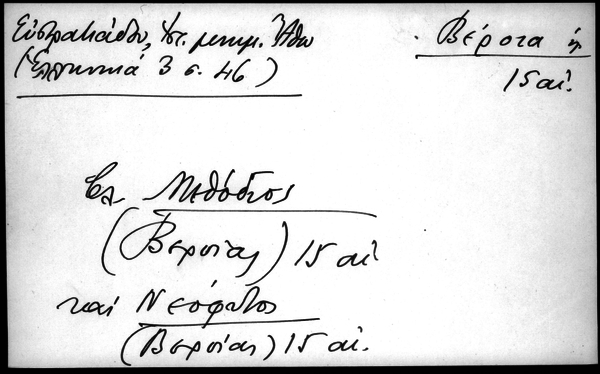 Εὐστρατιάδου, Ἱστ. μνημ. Ἄθω
(Ἑλληνικά 3 σ. 46)
Βέροια ἡ
15 αἰ.
βλ. Μεθόδιος
(Βεροίας) 15 αἰ
καί Νεόφυτος
(Βεροίας) 15 αἰ.